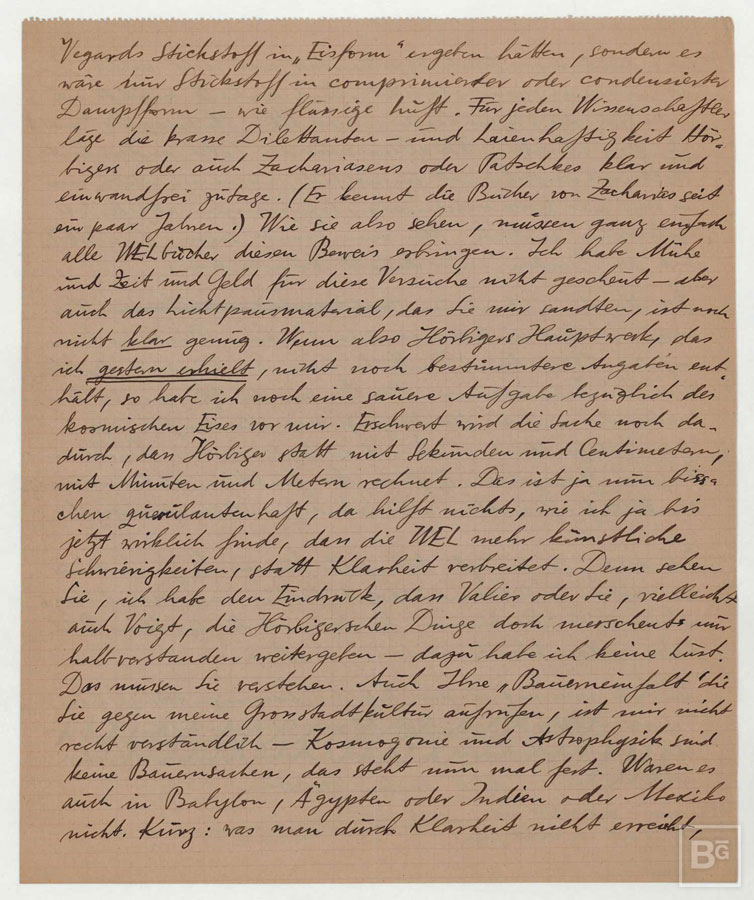 Vegards Stickstoff in „Eisform“ ergeben hätten, sondern es
wäre nur Stickstoff in comprimierter oder condensierter
Dampfform – wie flüssige Luft. Für jeden Wissenschaftler
läge die krasse Dilettanten – und Laienhaftigkeit Hör-
bigers oder auch Zachariasens oder Patschkes klar und
einwandfrei zutage. (Er kennt die Bücher von Zacharies seit
ein paar Jahren.) Wie sie also sehen, müssen ganz einfach
alle WELbücher diesen Beweis erbringen. Ich habe Mühe
und Zeit und Geld für diese Versuche nicht gescheut – aber
auch das Lichtpausmaterial, das Sie mir sandten, ist noch
nicht klar genug. Wenn also Hörbigers Hauptwerk, das
ich gestern erhielt, nicht noch bestimmtere Angaben ent-
hält, so habe ich noch eine sauere Aufgabe bezüglich des
kosmischen Eises vor mir. Erschwert wird die Sache noch da-
durch, dass Hörbiger statt mit Sekunden und Centimetern,
mit Minuten und Metern rechnet. Das ist ja nun biss-
chen querulantenhaft, da hilft nichts, wie ich ja bis
jetzt wirklich finde, dass die WEL mehr künstliche
Schwierigkeiten, statt Klarheit verbreitet. Denn sehen
Sie, ich habe den Eindruck, dass Valier oder Sie, vielleicht
auch Voigt, die Hörbigerschen Dinge doch menschents nur
halbverstanden weitergeben – dazu habe ich keine Lust.
Das müssen Sie verstehen. Auch Ihre „Bauerneinfalt“ die
Sie gegen meine Grosstadtkultur aufrufen, ist mir nicht
recht verständlich – Kosmogonie und Astrophysik sind
keine Bauernsachen, das steht nun mal fest. Waren es
auch in Babylon, Ägypten oder Indien oder Mexiko
nicht. Kurz: was man durch Klarheit nicht erreicht,
BG